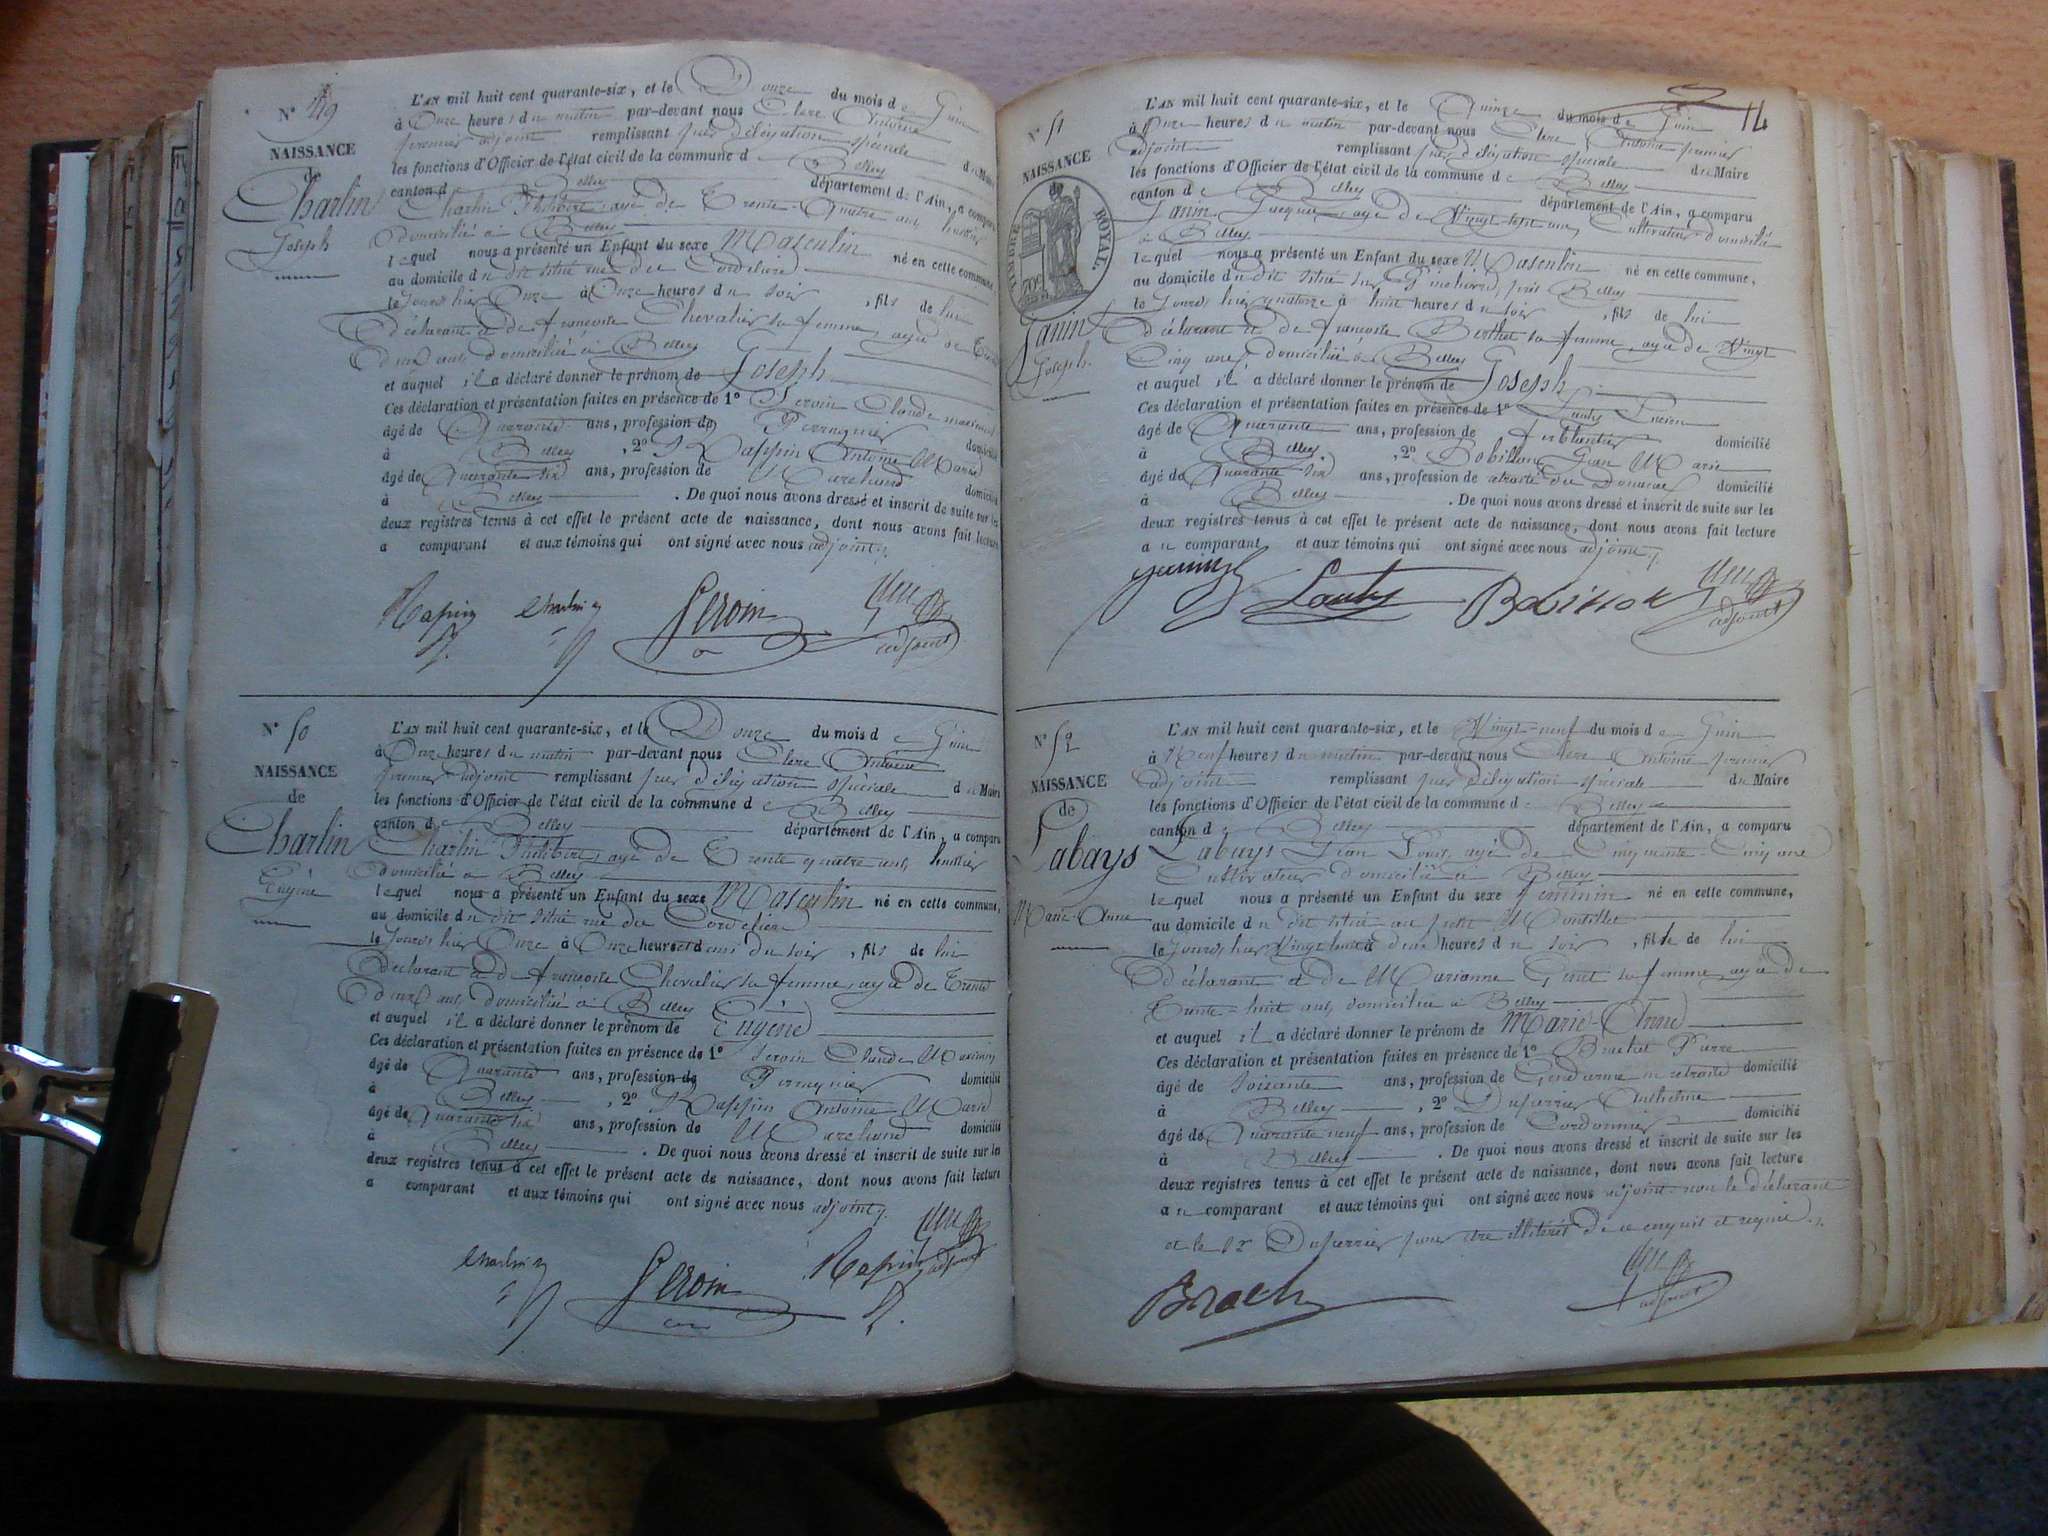 N° 49
NAISSANCE
de
Charlin
Joseph
L'AN mil huit cent quarante-six, et le Douze du mois de Juin
à Onze heures du matin par-devant nous Clerc Antoine
premier adjoint remplissant par délégation spéciale du Maire
les fonctions d'Officier de l'état civil de la commune de Belley
canton de Belley département de l'Ain, a comparu
Charlin Philibert, agé de Trente-Quatre ans, huissier
domicilié à Belley
lequel nous a présenté un Enfant du sexe Masculin né en cette commune
au domicile du dit situé rue des Cordeliers
le jourd'hier Onze à Onze heures du soir, fils de lui
déclarant et de françoise Chevalier sa femme, agée de Trente
Deux ans, domiciliée à Belley
et auquel il a déclaré donner le prénom de Joseph
Ces déclaration et présentation faites en présence de 1° Peroin Claude
âgé de Quarante ans, profession de Perruquier domicilié
à Belley, 2° Rappin Antoine Marie
âgé de Quarante six ans, profession de Marchand domicilié
à Belley. De quoi nous avons dressé et inscrit de suite sur les
deux registres tenus à cet effet le présent acte de naissance, dont nous avons fait lecture
a comparant et aux témoins qui ont signé avec nous adjoint
Rapin Charlin Peroin
adjoint
N° 50
NAISSANCE
de
Charlin
Eugène
L'AN mil huit cent quarante-six, et le Douze du mois de Juin
à Onze heures du matin par-devant nous Clerc Antoine
premier adjoint remplissant par délégation spéciale du Maire
les fonctions d'Officier de l'état civil de la commune de Belley
canton de Belley département de l'Ain, a comparu
Charlin Philibert, agé de Trente quatre ans, huissier
domicilié à Belley
lequel nous a présenté un Enfant du sexe Masculin né en cette commune,
au domicile du dit situé rue des Cordeliers
le jourd'hier Onze à Onze heures et demi du soir, fils de lui
déclarant et de françoise Chevalier sa femme, agée de Trente
Deux ans, domiciliée à Belley
et auquel il a déclaré donner le prénom de Eugène
Ces déclaration et présentation faites en présence de 1° Peroin Claude Maximin
âgé de Quarante ans, profession de Perruquier domicilié
à Belley, 2° Rappin Antoine Marie
âgé de Quarante six ans, profession de Marchand domicilié
à Belley. De quoi nous avons dressé et inscrit de suite sur les
deux registres tenus à cet effet le présent acte de naissance, dont nous avons fait lecture
a comparant et aux témoins qui ont signé avec nous adjoint
Charlin Peroin Rapin
adjoint
14
N° 51
NAISSANCE
de
TIMBRE ROYAL.
70c
Janin
Joseph
L'AN mil huit cent quarante-six, et le Quinze du mois de Juin
à Onze heures du matin par-devant nous Clerc Antoine premier
adjoint remplissant par délégation spéciale du Maire
les fonctions d'Officier de l'état civil de la commune de Belley
canton de Belley département de l'Ain, a comparu
Janin Jacques, agé de Vingt sept ans, Cultivateur domicilié
à Belley
lequel nous a présenté un Enfant du sexe Masculin né en cette commune,
au domicile du dit situé sur près Belley
le jourd'hier quatorze à huit heures du soir, fils de lui
déclarant et de françoise Berthet sa femme, agée de Vingt
Cinq ans, domiciliée à Belley
et auquel il a déclaré donner le prénom de Joseph
Ces déclaration et présentation faites en présence de 1° Lauty Lucien
âgé de Quarante ans, profession de ferblantier domicilié
à Belley, 2° Bobillon Jean Marie
âgé de Quarante six ans, profession de retraité des Douanes domicilié
à Belley. De quoi nous avons dressé et inscrit de suite sur les
deux registres tenus à cet effet le présent acte de naissance, dont nous avons fait lecture
au comparant et aux témoins qui ont signé avec nous adjoint
Janin Lauty
adjoint
N° 52
NAISSANCE
de
Labays
Marie-Anne
L'AN mil huit cent quarante-six, et le Vingt-neuf du mois de Juin
à Neuf heures du matin par-devant nous Clerc Antoine premier
adjoint remplissant par délégation spéciale du Maire
les fonctions d'Officier de l'état civil de la commune de Belley
canton de Belley département de l'Ain, a comparu
Labays Jean Louis, agé de Cinquante-Cinq ans
Cultivateur domicilié à Belley
lequel nous a présenté un Enfant du sexe féminin né en cette commune,
au domicile du dit situé au petit Montillet
le jourd'hier Vingt huit à deux heures du soir, fille de lui
déclarant et de Marianne Genet sa femme, agée de
Trente-huit ans, domiciliée à Belley
et auquel il a déclaré donner le prénom de Marie-Anne
Ces déclaration et présentation faites en présence de 1° Brachet Pierre
âgé de Soixante ans, profession de Gendarme en retraite domicilié
à Belley, 2° Duperrier Anthelme
âgé de Quarante neuf ans, profession de Cordonnier domicilié
à Belley. De quoi nous avons dressé et inscrit de suite sur les
deux registres tenus à cet effet le présent acte de naissance, dont nous avons fait lecture
au comparant et aux témoins qui ont signé avec nous adjoint non le déclarant
et le Sr Duperrier pour être illitéré de ce enquis et requis
Brach
adjoint